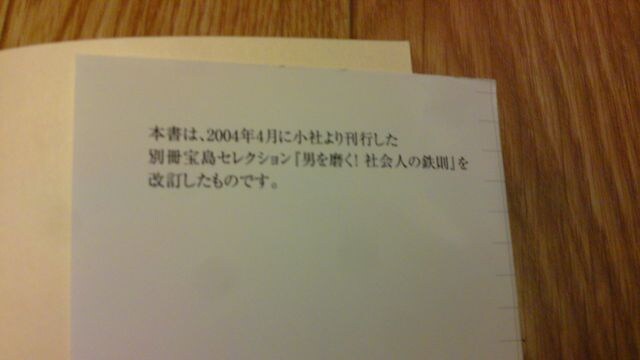 本書は、2004年4月に小社より刊行した
別冊宝島セレクション『男を磨く! 社会人の鉄則』を
改訂したものです。